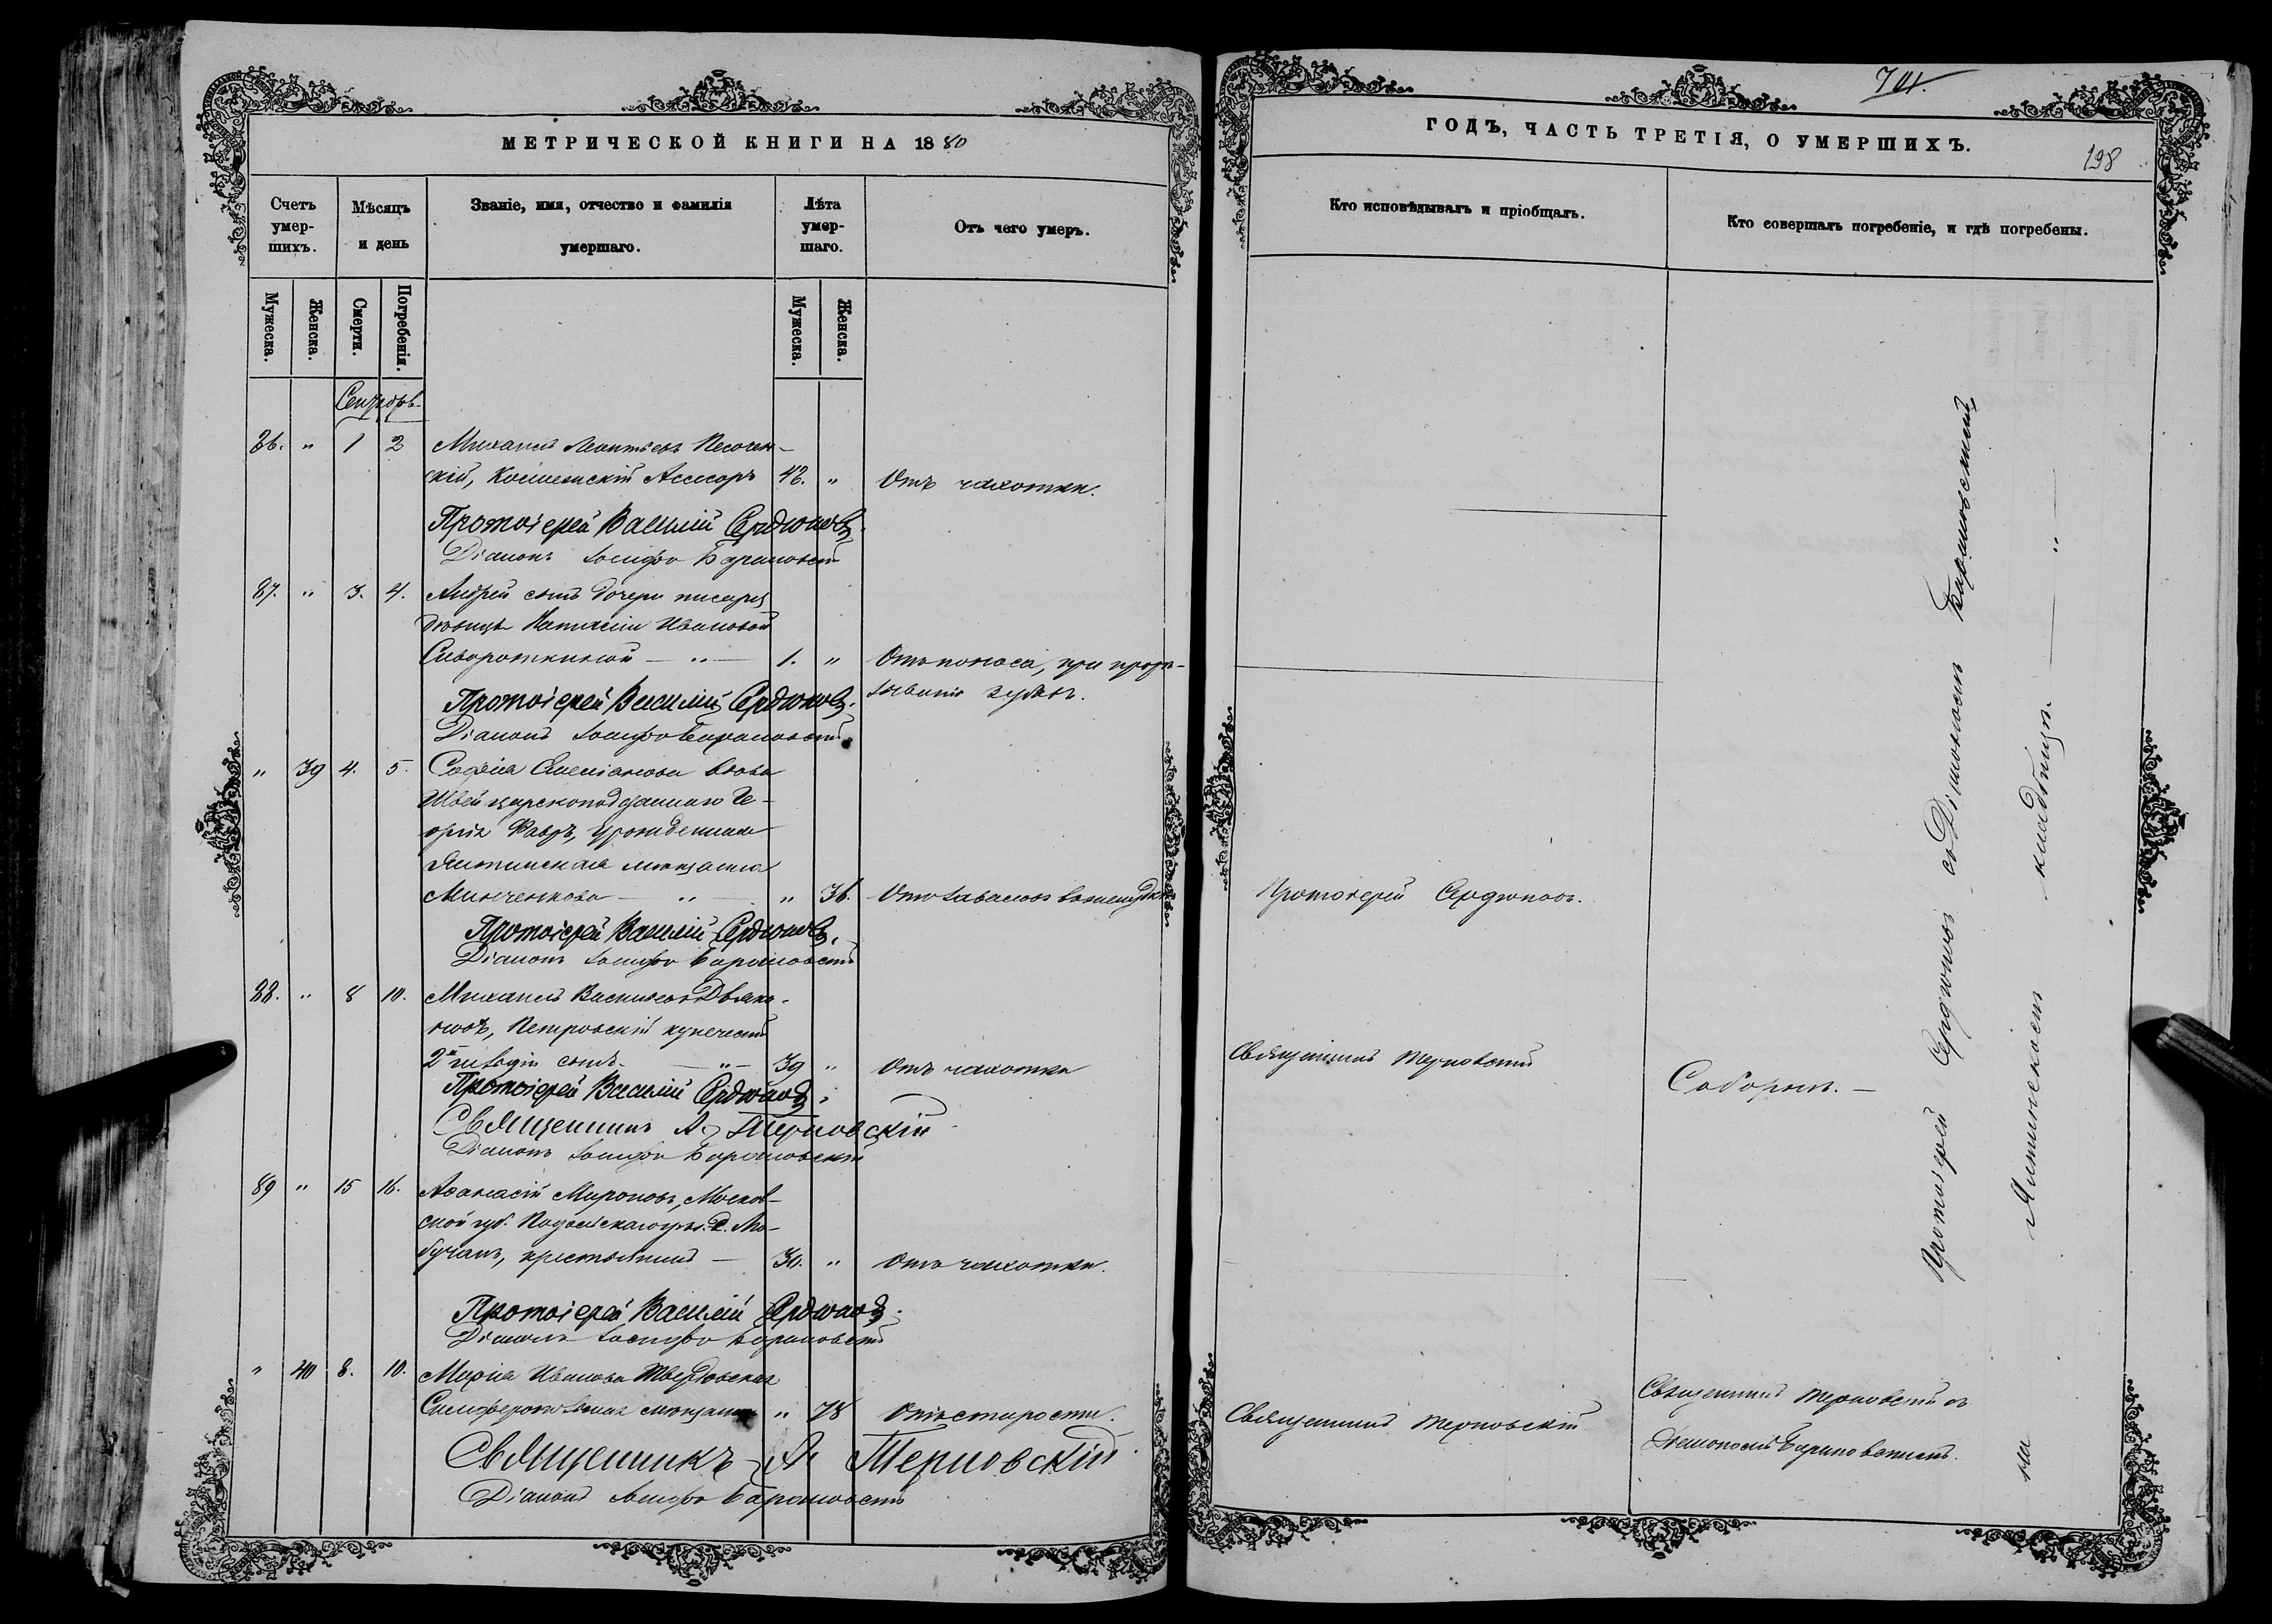 МЕТРИЧЕСКОЙ КНИГИ НА 1880
Счетъ умер-шихъ.
Мѣсяцъ и день
Званіе, имя, отчество и фамилія умершаго.
Лѣта умер-шаго.
Отъ чего умеръ.
Мужеска.
Женска.
Смерти.
Погребенія.
Мужеска.
Женска.
86. " 1 2 Михаилъ Леонтьевъ Песочен-
скій, Коллежскій Ассесоръ 42. " Отъ чахотки.
Протоіерей Василій Сердюковъ.
Діаконъ Іосифъ Барановскій
87. " 3. 4. Андрей сынъ дочери писаря
дѣвицы Наталіи Ивановой
Сивороткиной — " — 1. " Отъ поноса, при прорѣ-
зываніи зубовъ.
Протоіерей Василій Сердюковъ.
Діаконъ Іосифъ Барановскій
" 39 4. 5. Софія вдова
Швейцарскоподданнаго Ге-
оргія урожденная
Ялтинская мѣщанка
Минченкова — " — " 36.
Протоіерей Василій Сердюковъ.
Діаконъ Іосифъ Барановскій
88. " 8 10. Михаилъ Васильевъ
Петровскій купеческій
2й гильдіи сынъ. — " — 39 " Отъ чахотки
Протоіерей Василій Сердюковъ.
Священникъ А. Терновскій
Діаконъ Іосифъ Барановскій
89 " 15 16. Аѳанасій Мироновъ, Москов-
ской губ. Подольскаго у.
крестьянинъ — 30. " Отъ чахотки.
Протоіерей Василій Сердюковъ.
Діаконъ Іосифъ Барановскій
" 40 8. 10. Марія Иванова Твердовская
Симферопольская мѣщанка " 78 Отъ старости.
Священникъ А. Терновскій
Діаконъ Іосифъ Барановскій
701.
ГОДЪ, ЧАСТЬ ТРЕТІЯ, О УМЕРШИХЪ.
198
Кто исповѣдывалъ и пріобщалъ.
Кто совершалъ погребеніе, и гдѣ погребены.
Протоіерей Сердюковъ.
Священникъ Терновскій
Соборнѣ. —
Священникъ Терновскій
Священникъ Терновскій съ
Діакономъ Барановскимъ.
Протоіерей Сердюковъ съ Діакономъ Барановскимъ
на Ялтинскомъ кладбищѣ. — " —